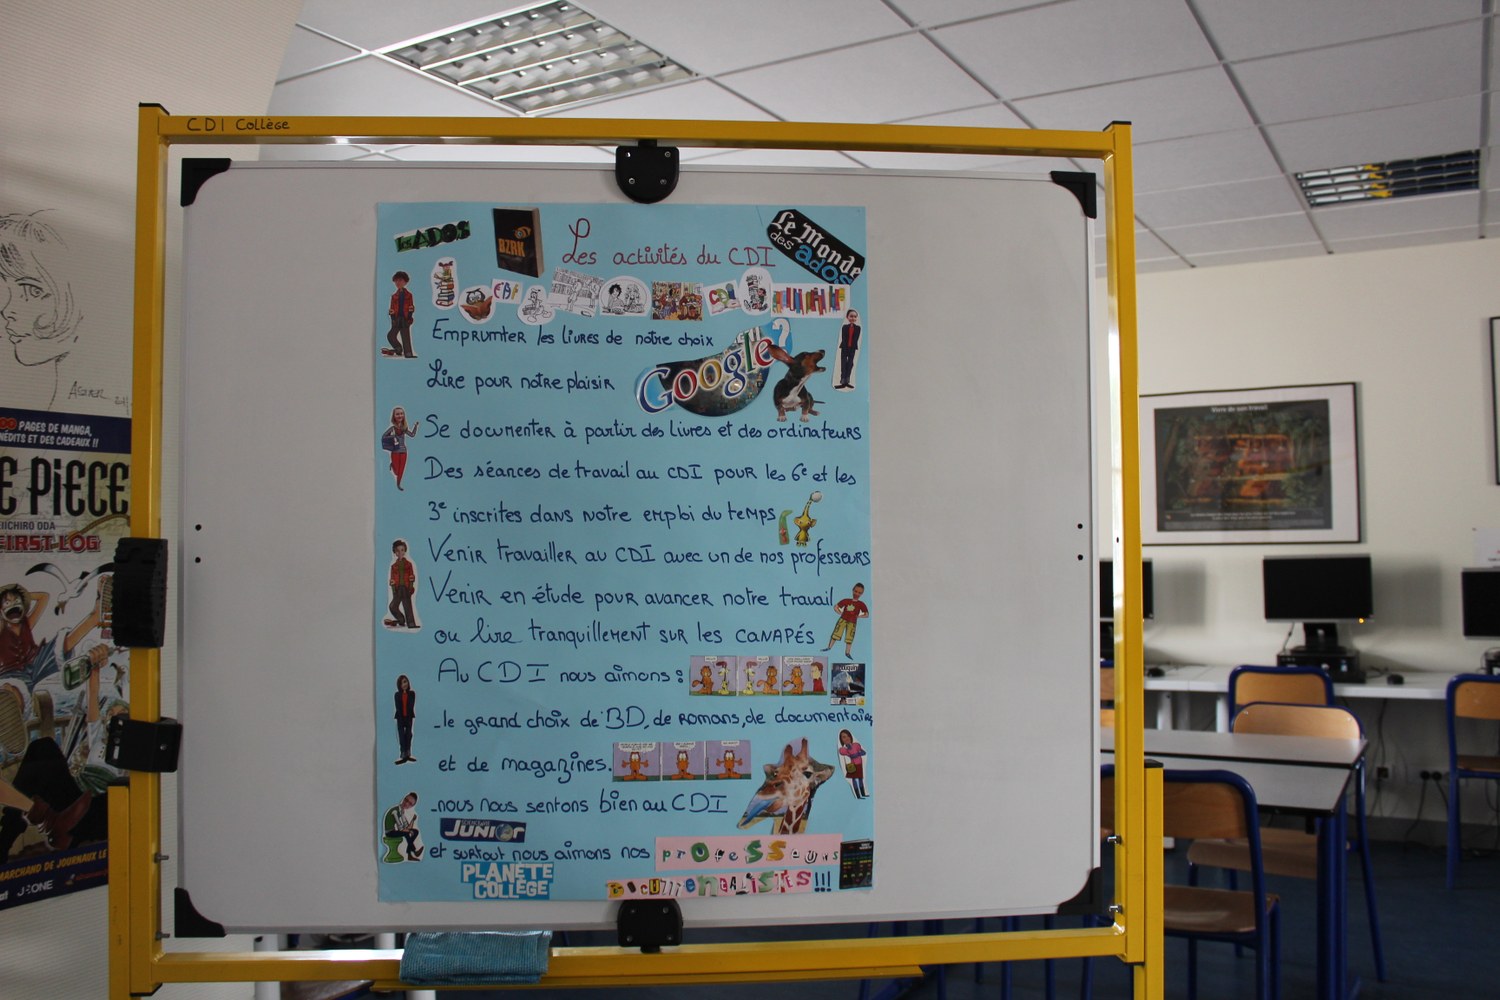 CDI Collège
les ADOS
BZRK
Les activités du CDI
Le Monde
des ados
CDI
Emprunter les livres de notre choix
Google
Lire pour notre plaisir
Se documenter à partir des livres et des ordinateurs
Des séances de travail au CDI pour les 6e et les
3e inscrites dans notre emploi du temps
Venir travailler au CDI avec un de nos professeurs
Venir en étude pour avancer notre travail
ou lire tranquillement sur les canapés
Au CDI nous aimons :
_le grand choix de BD, de romans, de documentaires
et de magazines.
_nous nous sentons bien au CDI
JUNIOR
et surtout nous aimons nos professeurs
PLANÈTE
COLLÈGE
DOCUMENTALISTES!!!
PAGES DE MANGA,
INÉDITS ET DES CADEAUX !!
E PIECE
EIICHIRO ODA
FIRST LOG
MARCHAND DE JOURNAUX LE
J-ONE